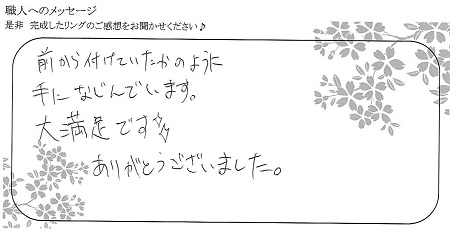 職人へのメッセージ
是非 完成したリングのご感想をお聞かせください♪
前から付けていたかのように
手になじんでいます。
大満足です
ありがとうございました。